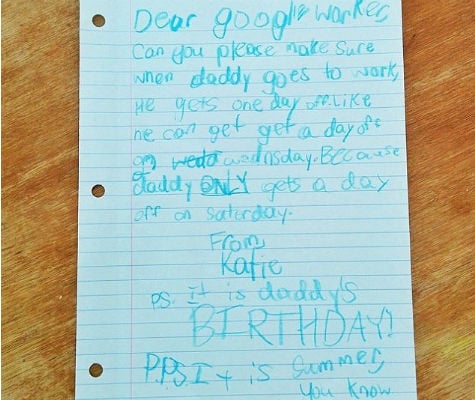 Dear google worker,
Can you please make sure
when daddy goes to work,
He gets one day off. Like
he can get get a day off
on wedd wednsday. Because
daddy ONLY gets a day
off on saturday.
From,
Katie
P.S. It is daddy's
BIRTHDAY!
P.P.S. It is summer,
You Know